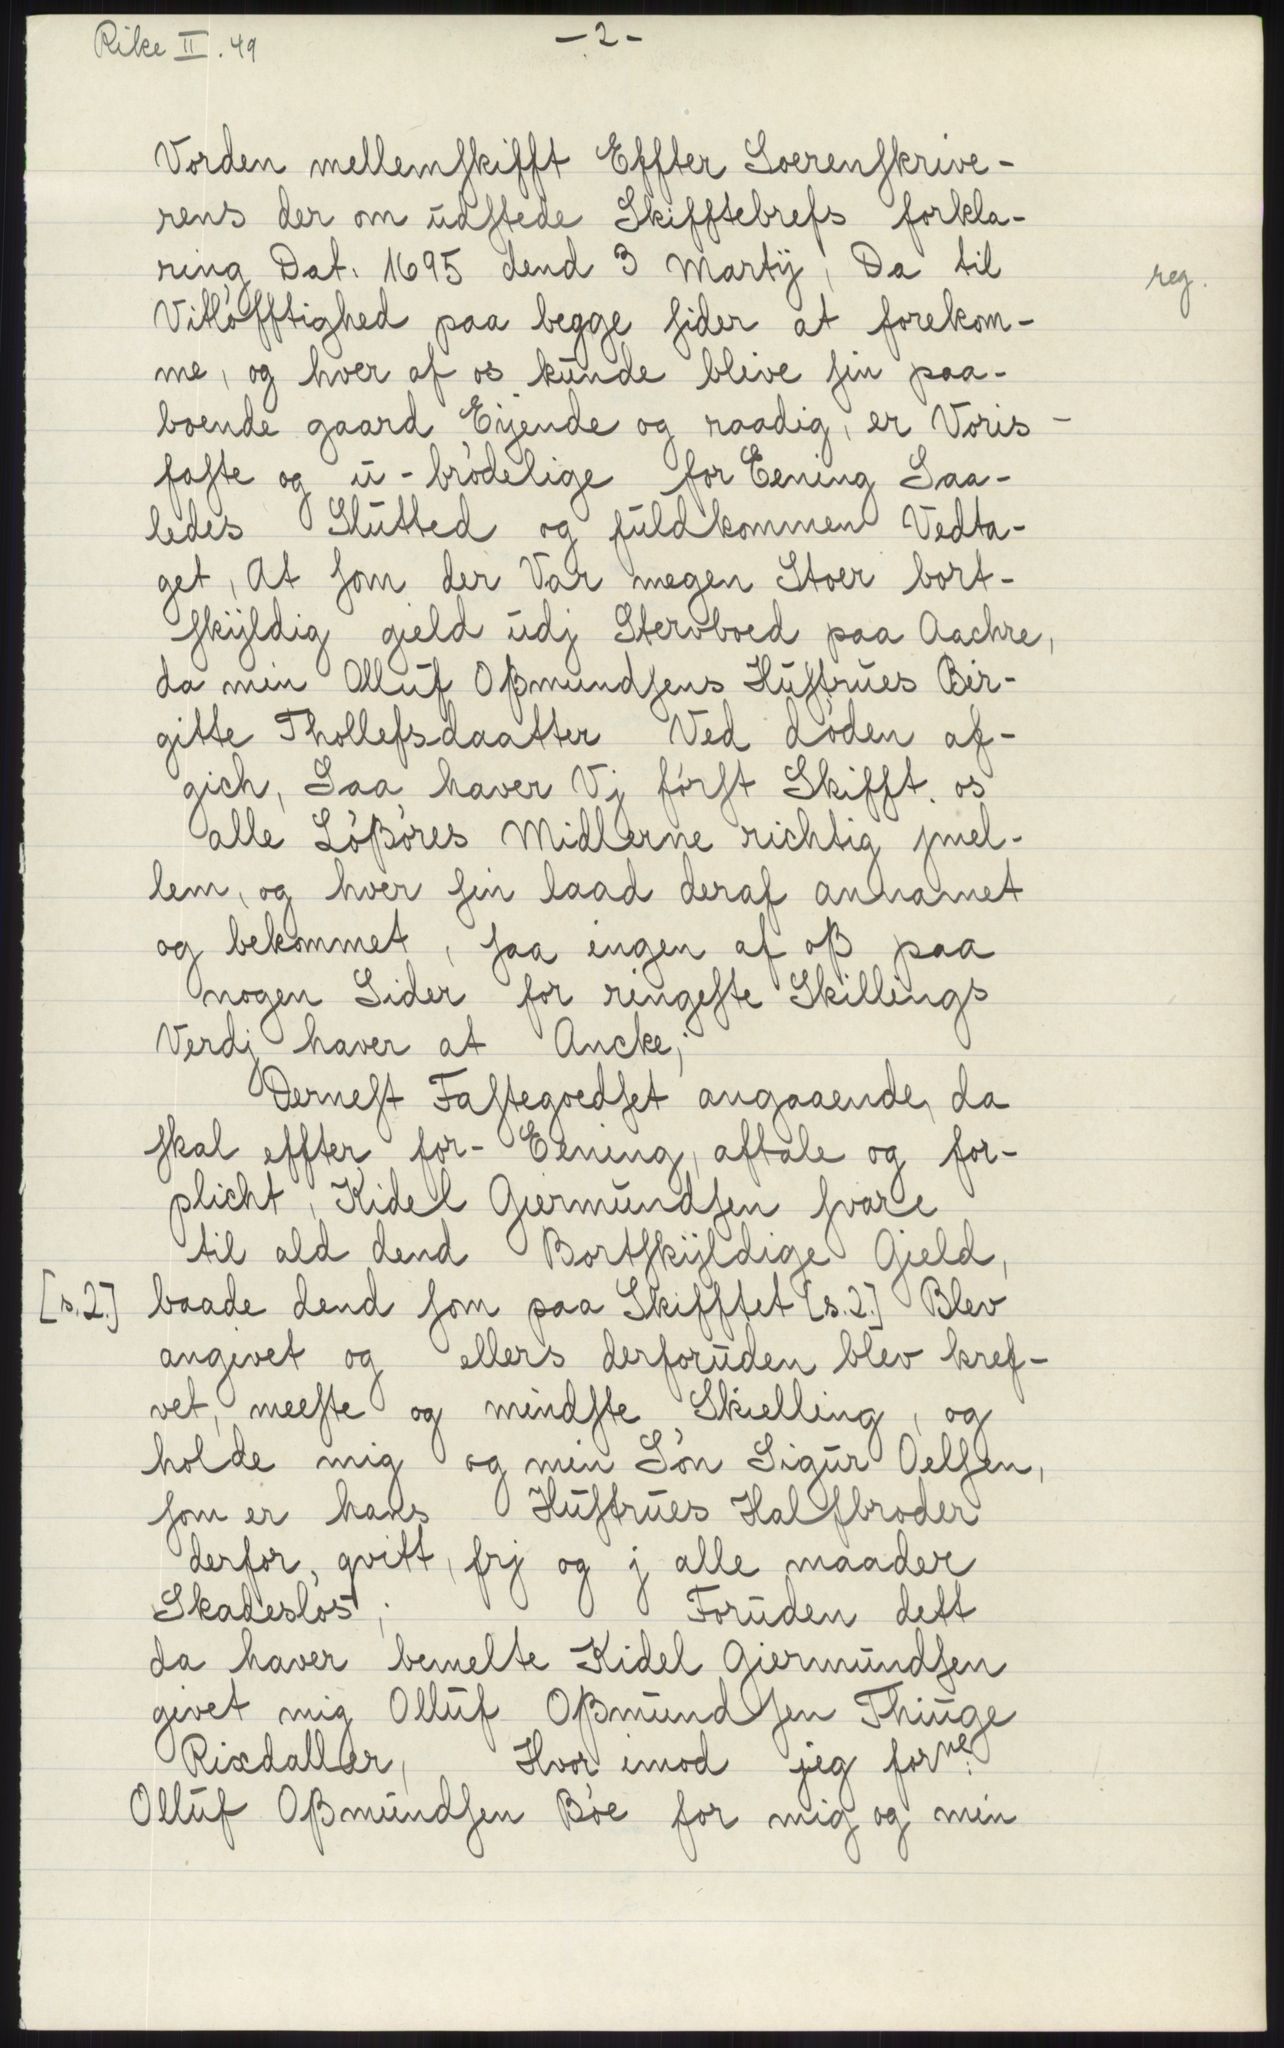 Rike II. 49
- 2 -
Vorden mellemskifft Effter Soerenskrive-
rens der om udstede Skifftebrefs forkla-
ring Dat. 1695 dend 3 Martÿ, Da til
reg.
Vitløfftighed paa begge sider at forekom-
me, og hver af os kunde blive sin paa-
boende gaard Eijende og raadig, er Voris -
faste og u-brødelige for Eening Saa-
ledes Slutted og fuldkommen Vedta-
get, At som der Var megen Stoer bort-
skÿldig gield udj Stervboed paa Aachre,
da min Olluf Oßmundsens Hustrues Bir-
gitte Thollefsdaatter Ved døden af-
gich, Saa haver Vj først Skifft. os
alle Løßøres Midlerne richtig jmel-
lem, og hver sin laad deraf annamet
og bekommet, saa ingen af oß paa
nogen Sider for ringeste Skillings
Verdj haver at Ancke;
Dernest Fastegoedset angaaende, da
skal effter for-Eening, aftale og for-
plicht, Kidel Giermundsen svare
til ald dend Bortskÿldige Gield,
[s.2.] baade dend som paa Skifftet [s.2.] Blev
angivet og ellers derforuden blev kref-
vet, meeste og mindste Skielling, og
holde mig og min Søn Sigur Oelsen,
som er hans Hustrues Halfbroder
derfor, qvitt, frj og j alle maader
Skadesløs; Foruden dett
da haver bemelte Kidel Giermundsen
givet mig Olluf Oßmundsen Thiuge
Rixdaller, Hvor imod jeg forne.
Olluf Oßmundsen Bøe for mig og min